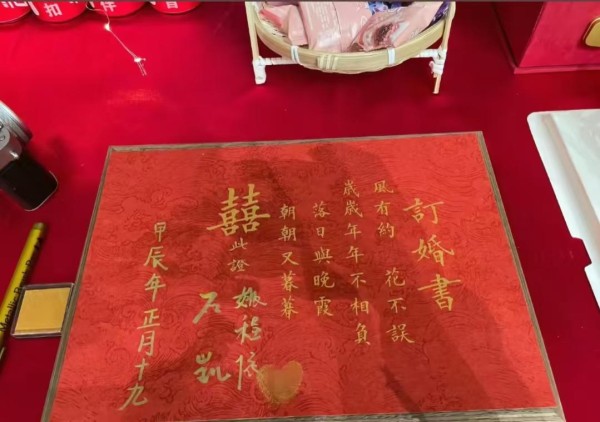 訂婚書
風有約 花不誤
歲歲年年不相負
落日與晚霞
朝朝又暮暮
囍
此證
石凱
甲辰年正月十九
扣